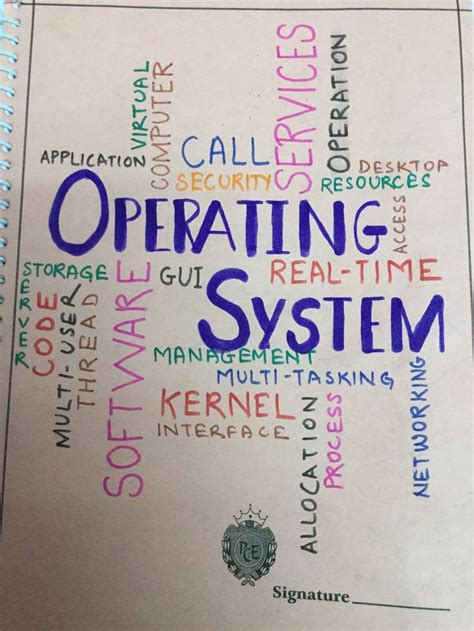 VIRTUAL
COMPUTER
SERVICES
OPERATION
APPLICATION
CALL
SECURITY
DESKTOP
RESOURCES
ACCESS
OPERATING
STORAGE
SERVER
CODE
MULTI-USER
THREAD
SOFTWARE
GUI
REAL-TIME
SYSTEM
MANAGEMENT
MULTI-TASKING
KERNEL
INTERFACE
ALLOCATION
PROCESS
NETWORKING
PCE
Signature